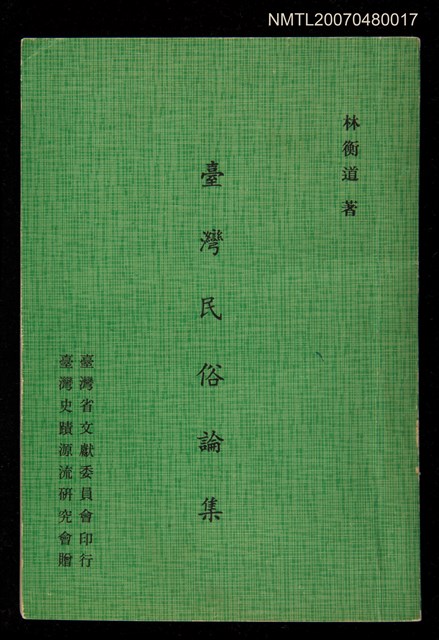 NMTL20070480017
林衡道 著
臺灣民俗論集
臺灣省文獻委員會印行
臺灣史蹟源流研究會贈